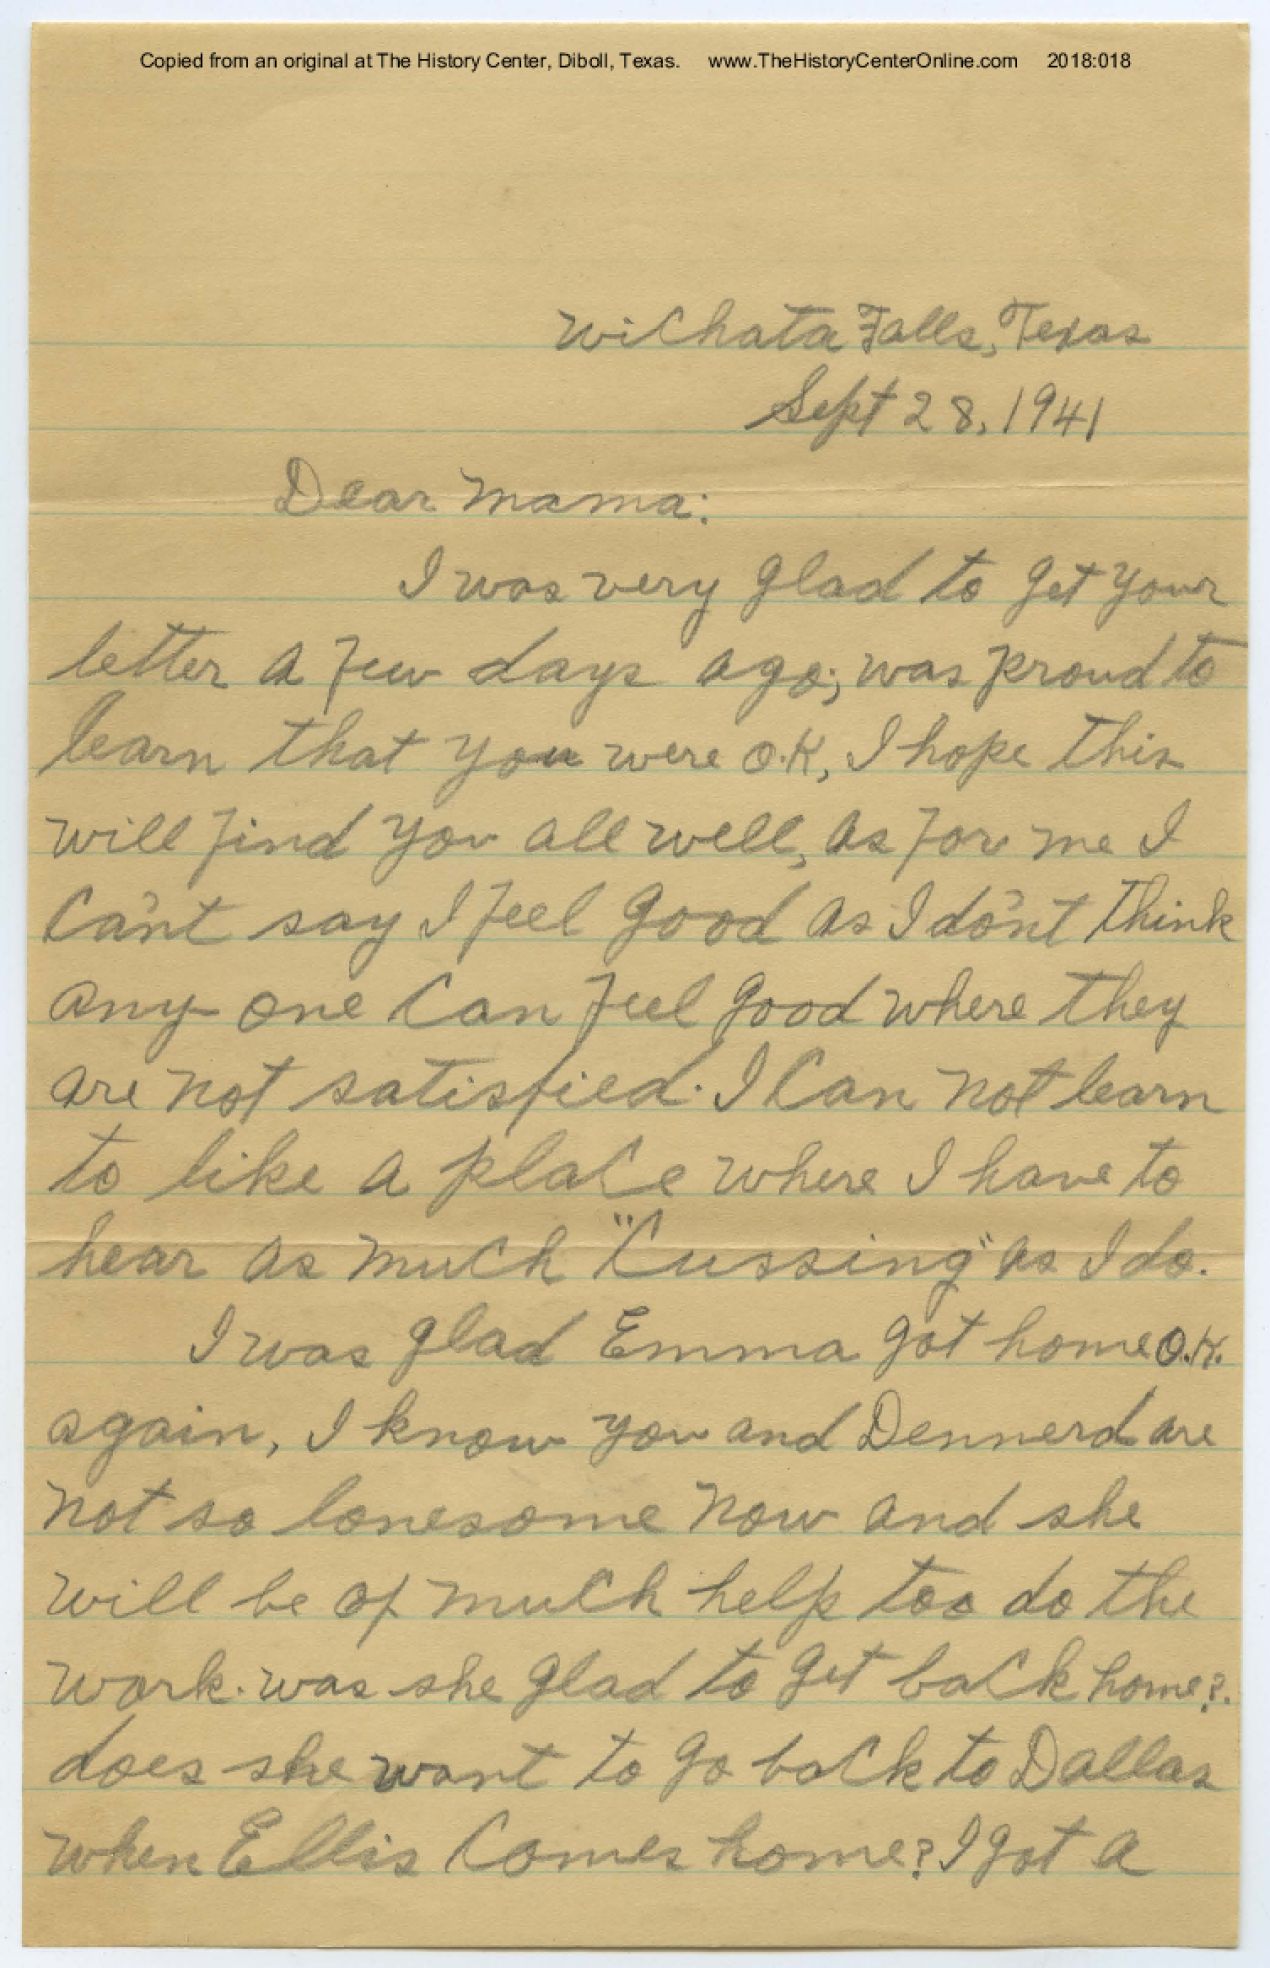 Copied from an original at The History Center, Diboll, Texas. www.TheHistoryCenterOnline.com 2018:018
Wichata Falls, Texas
Sept 28, 1941
Dear Mama:
I was very glad to get your
letter a few days ago; was proud to
learn that you were O.K, I hope this
will find you all well, as for me I
Can't say I feel good as I don't think
any one Can feel good where they
are not satisfied. I Can not learn
to like a place where I have to
hear as much "Cussing" as I do.
I was glad Emma got home O.K.
again, I know you and Dennerd are
not so lonesome now and she
will be of much help too do the
work. was she glad to get back home?.
does she want to go back to Dallas
when Ellis Comes home? I got a